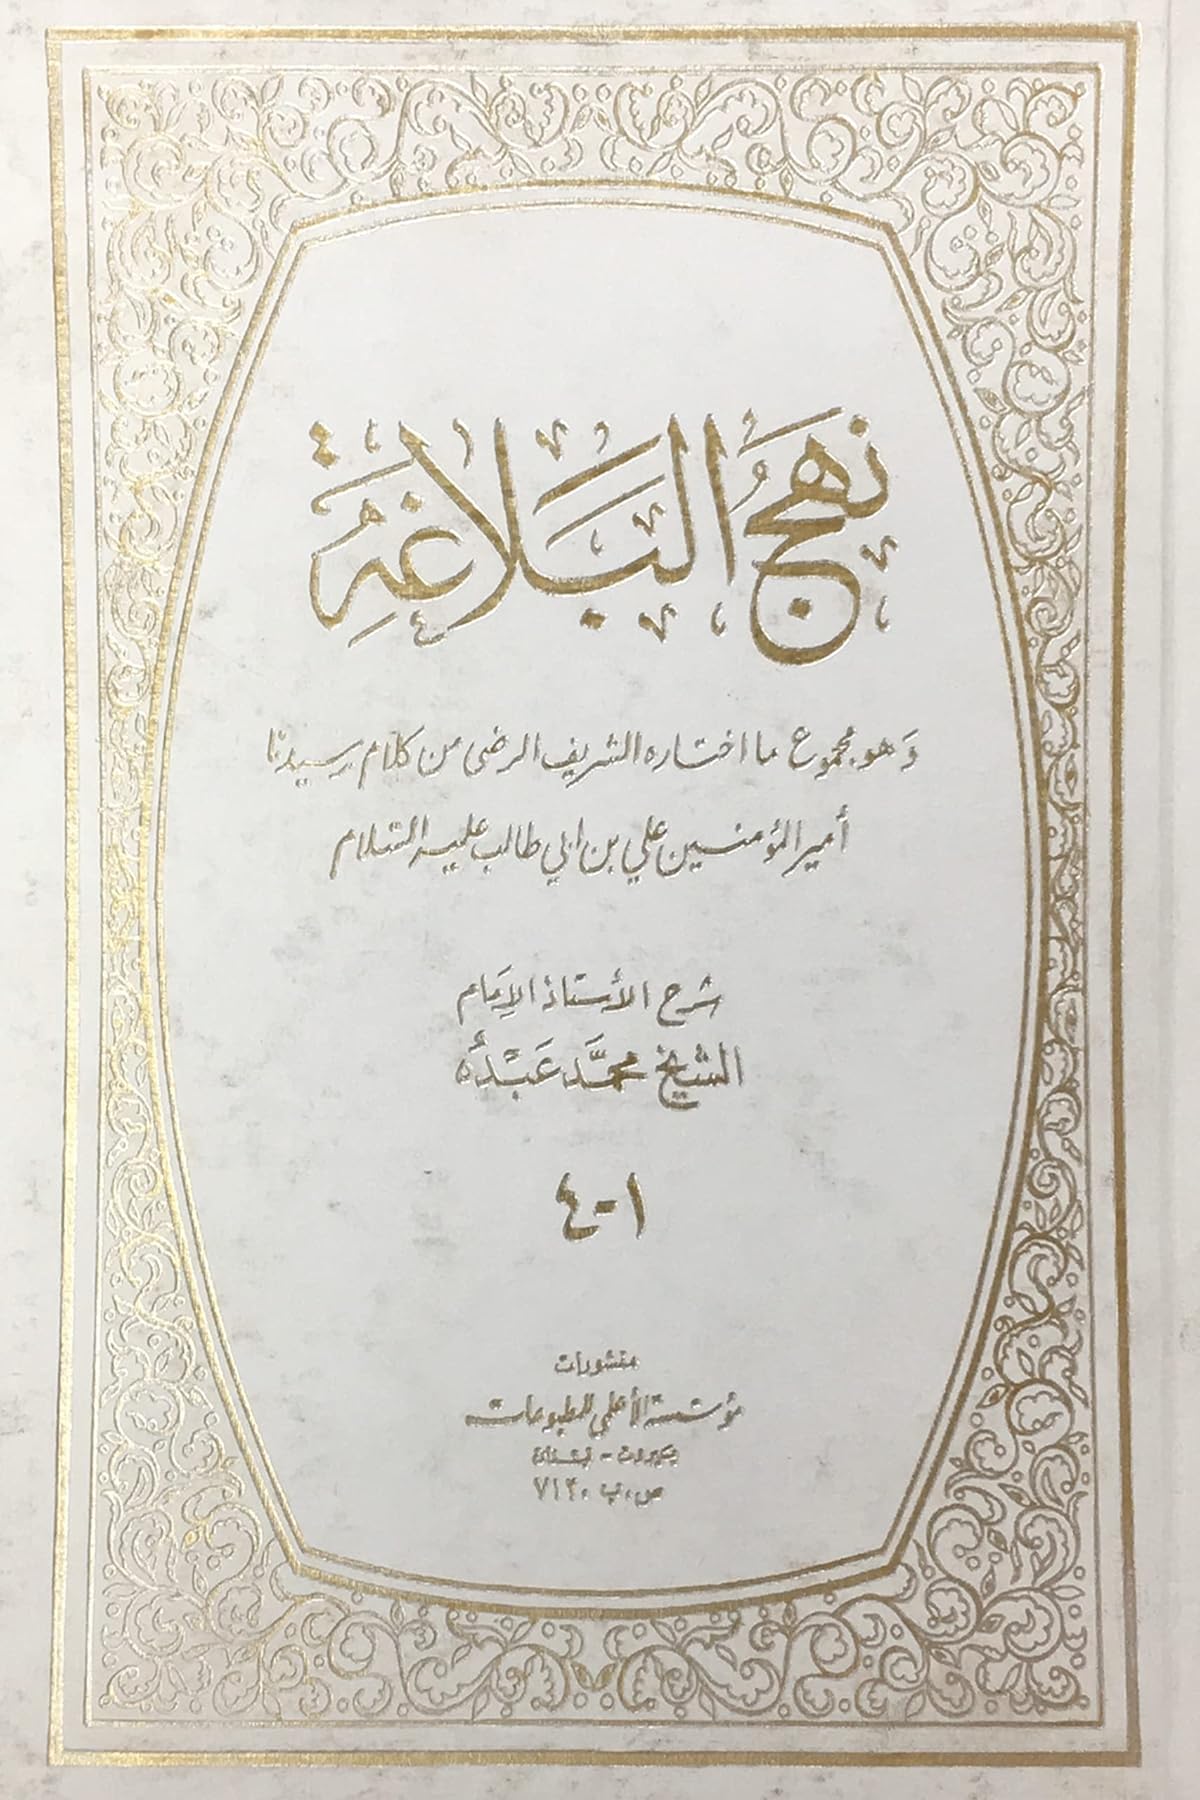 نهج البلاغة
وهو مجموع ما اختاره الشريف الرضي من كلام سيدنا
أمير المؤمنين علي بن ابي طالب عليه السلام
شرح الأستاذ الإمام
الشيخ محمد عبده
١-٤
منشورات
مؤسسة الأعلمي للمطبوعات
بيروت - لبنان
ص.ب ٧١٢٠